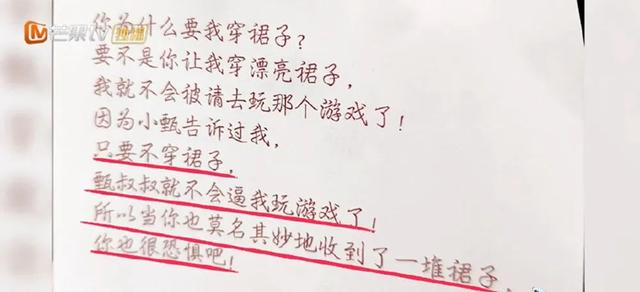 芒果TV 独播
你为什么要我穿裙子?
要不是你让我穿漂亮裙子,
我就不会被请去玩那个游戏了!
因为小甄告诉过我,
只要不穿裙子,
甄叔叔就不会逼我玩游戏了!
所以当你也莫名其妙地收到了一堆裙子,
你也很恐惧吧!